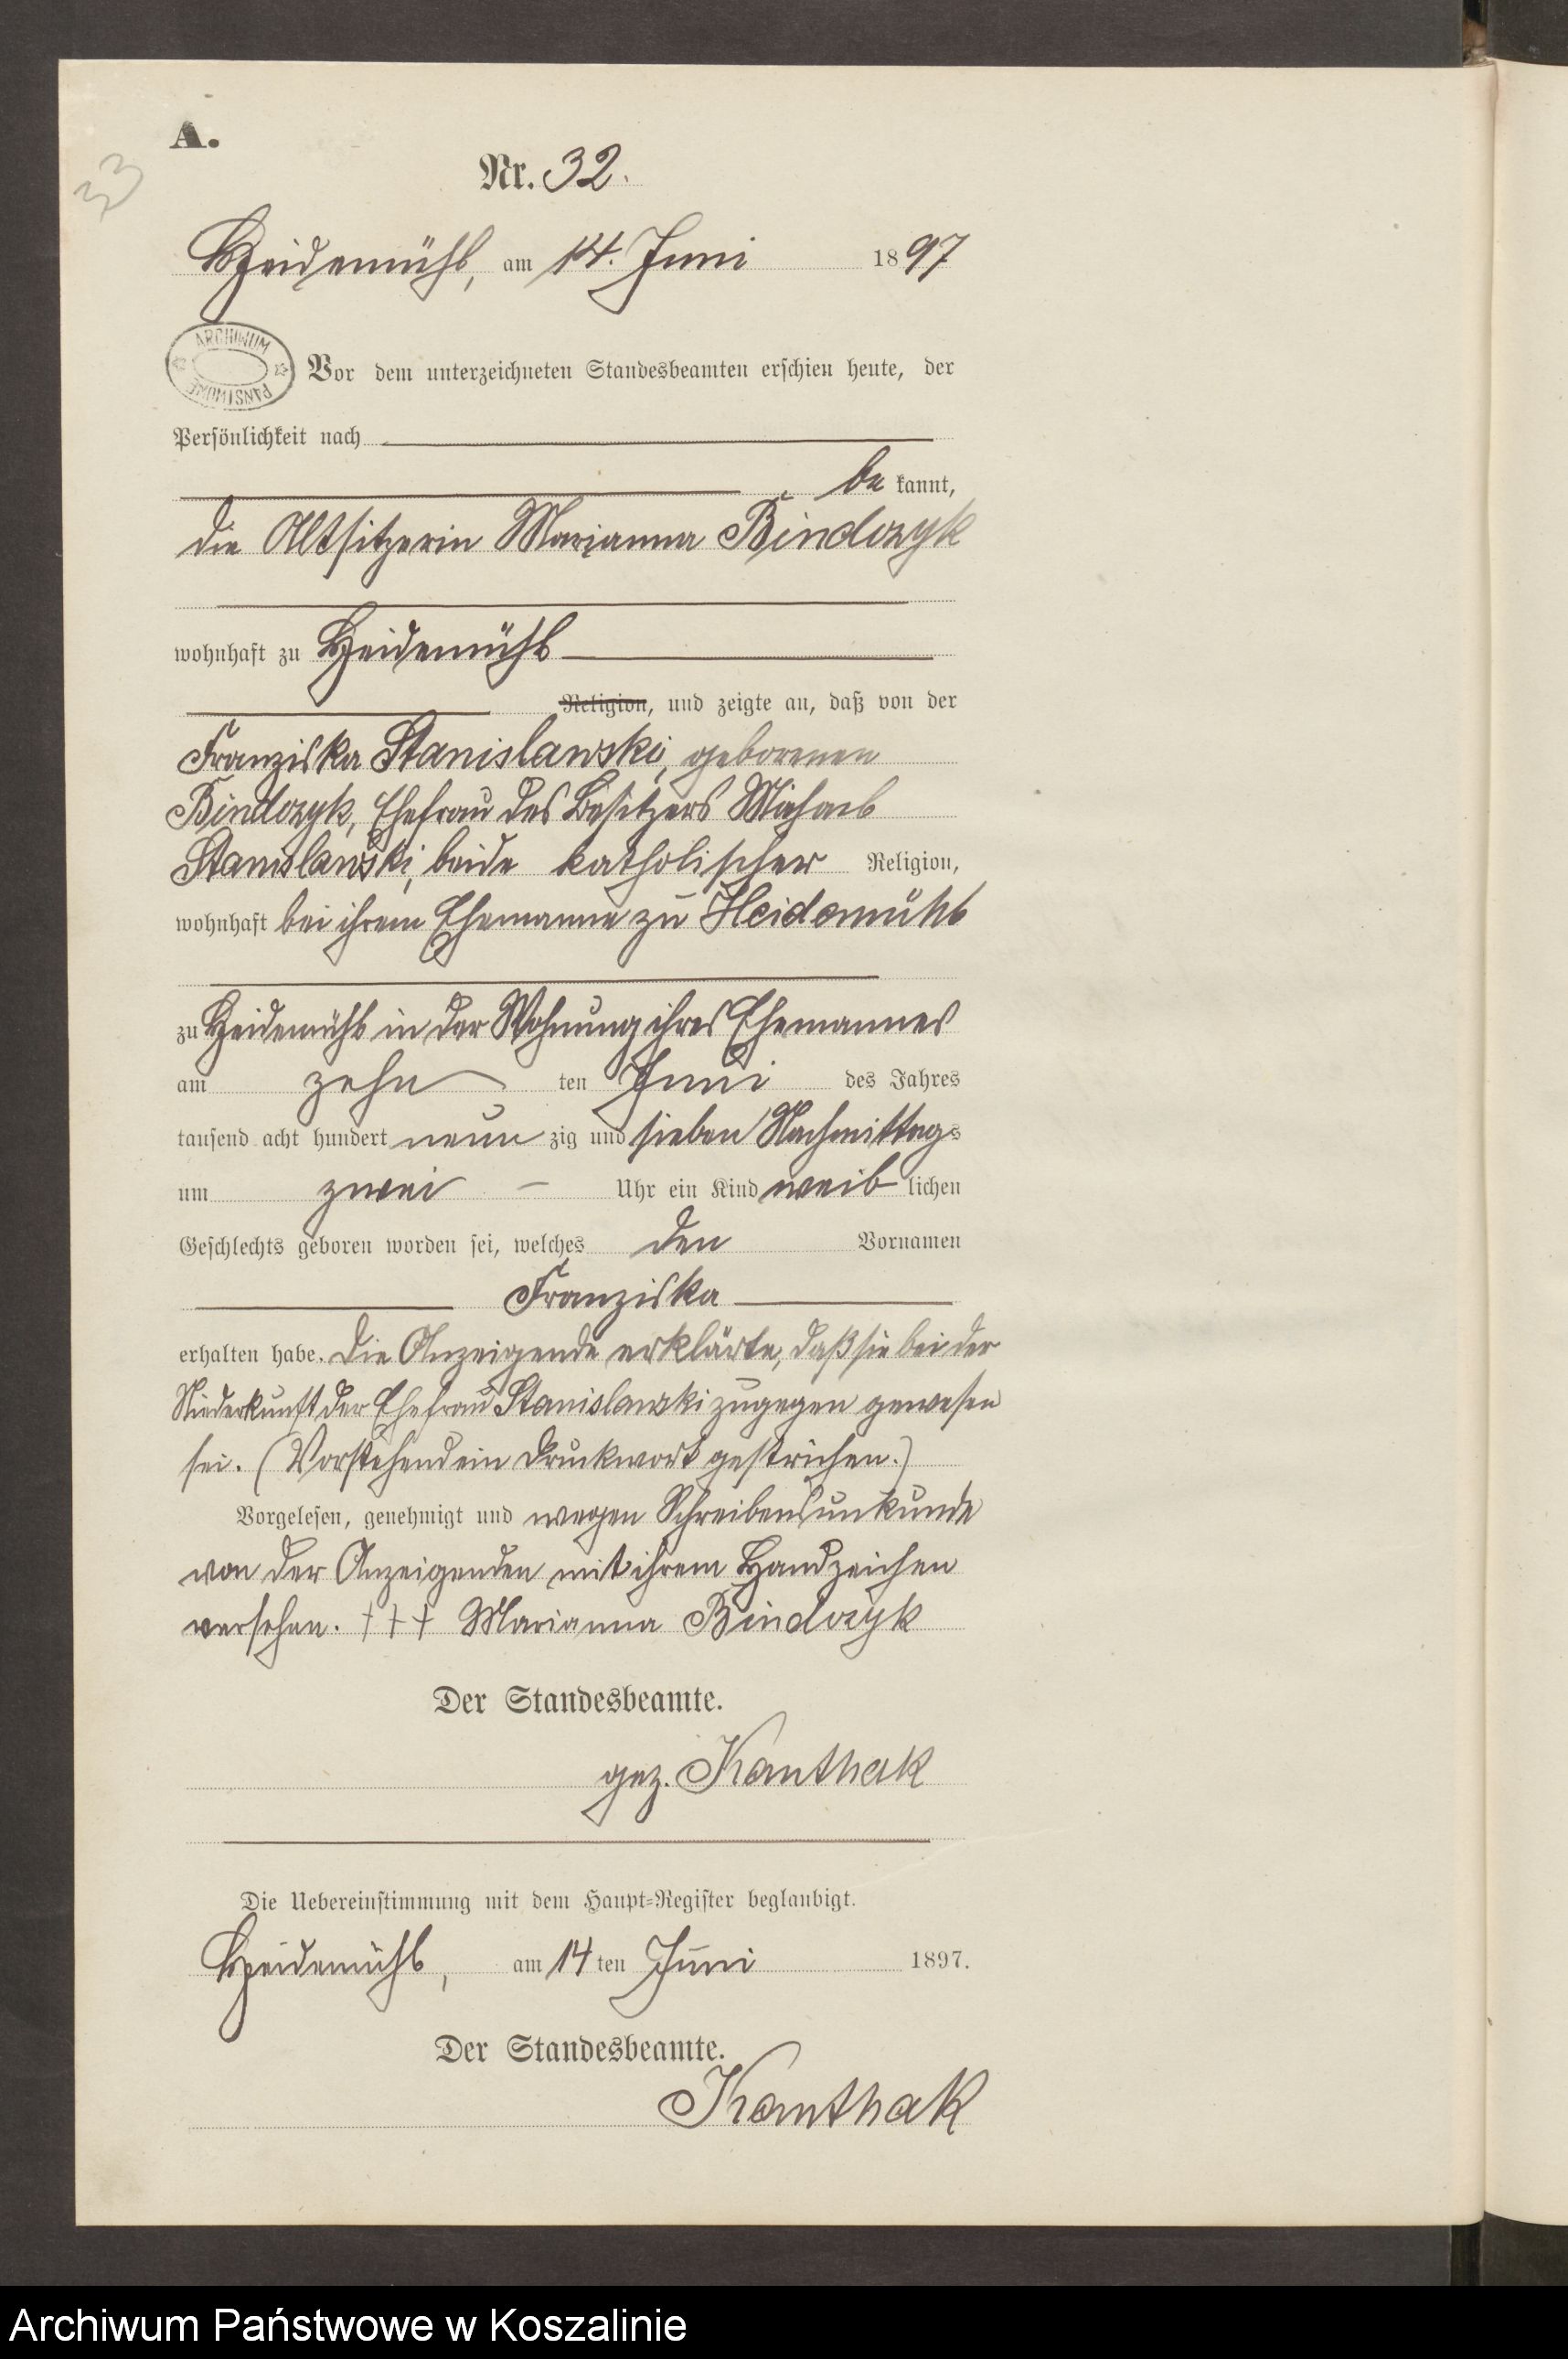 A.
33
Nr. 32.
Heidemühl, am 14. Juni 1897
ARCHIWUM PAŃSTWOWE
Vor dem unterzeichneten Standesbeamten erschien heute, der
Persönlichkeit nach
be kannt,
die Altsitzerin Marianna Bindczyk
wohnhaft zu Heidemühl
Religion, und zeigte an, daß von der
Franziska Stanislawski, geborenen
Bindczyk, Ehefrau des Besitzers Michael
Stanislawski, beide katholischer Religion,
wohnhaft bei ihrem Ehemanne zu Heidemühl
zu Heidemühl in der Wohnung ihres Ehemannes
am zehn ten Juni des Jahres
tausend acht hundert neun zig und sieben Nachmittags
um zwei – Uhr ein Kind weib lichen
Geschlechts geboren worden sei, welches den Vornamen
Franziska
erhalten habe. Die Anzeigende erklärte, daß sie bei der
Niederkunft der Ehefrau Stanislawski zugegen gewesen
sei. (Vorstehend ein Druckwort gestrichen.)
Vorgelesen, genehmigt und wegen Schreibensunkunde
von der Anzeigenden mit ihrem Handzeichen
versehen. +++ Marianna Bindczyk
Der Standesbeamte.
gez. Kanthak
Die Uebereinstimmung mit dem Haupt-Register beglaubigt.
Heidemühl, am 14 ten Juni 1897.
Der Standesbeamte.
Kanthak
Archiwum Państwowe w Koszalinie